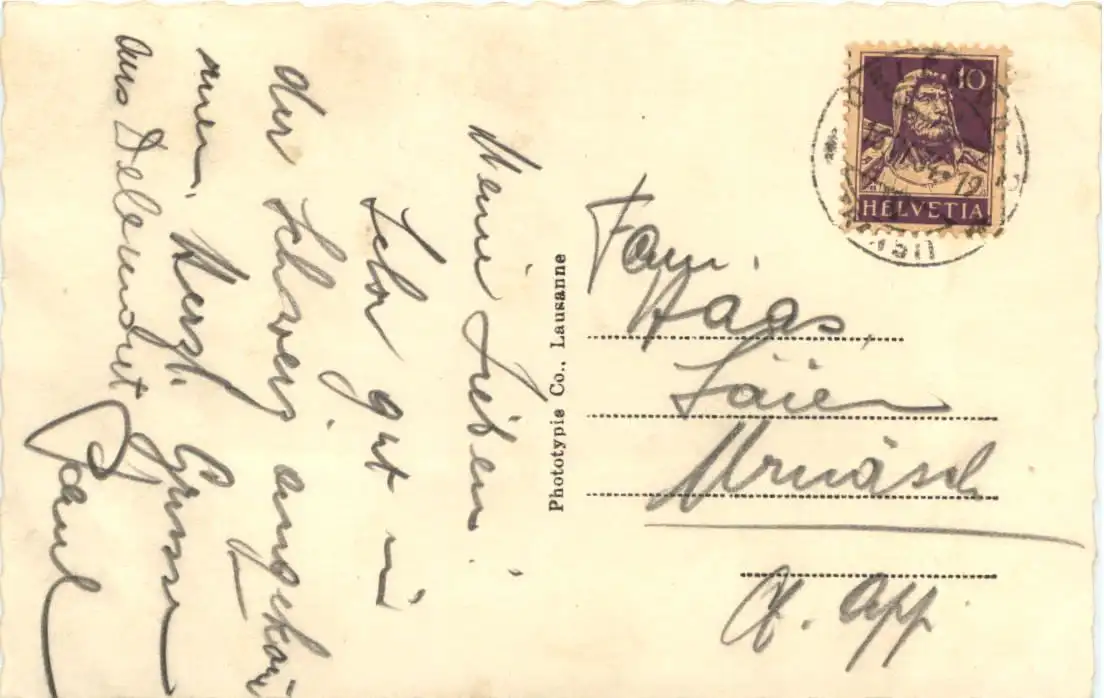 Meine Lieben!
Sehr gut in
der Schweiz angekom
men. Herzl. Grüsse
aus Delemont
Paul
Phototypie Co., Lausanne
10
HELVETIA
Fam.
Haas,
Urnäsch
App